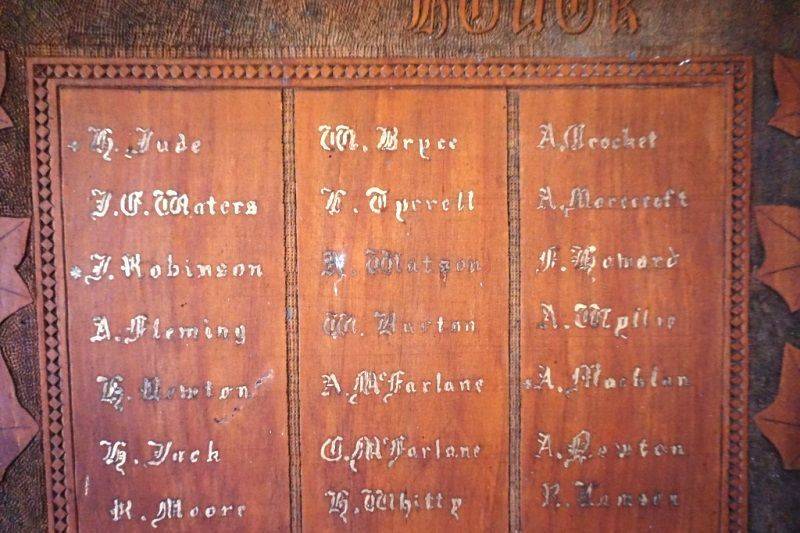 HONOR
* H. Jude
J. G. Waters
* J. Robinson
A. Fleming
H. Newton
H. Jack
R. Moore
W. Bryce
Tyrrell
Watson
W. Burton
A. McFarlane
C. McFarlane
H. Whitty
A. Mrocket
A. Morecroft
F. Howard
A. Wyllie
* A. Machlan
A. Newton